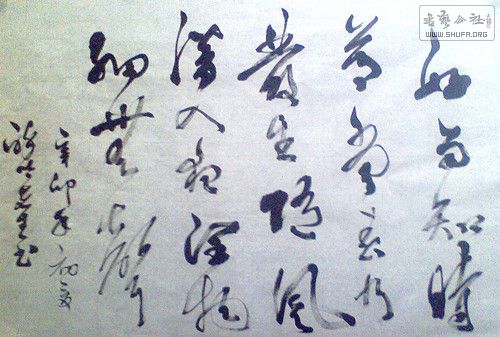 書藝公社
WWW.SHUFA.ORG
好雨知時
節當春乃
發生随風
潛入夜潤物
細無聲
辛卯年初夏